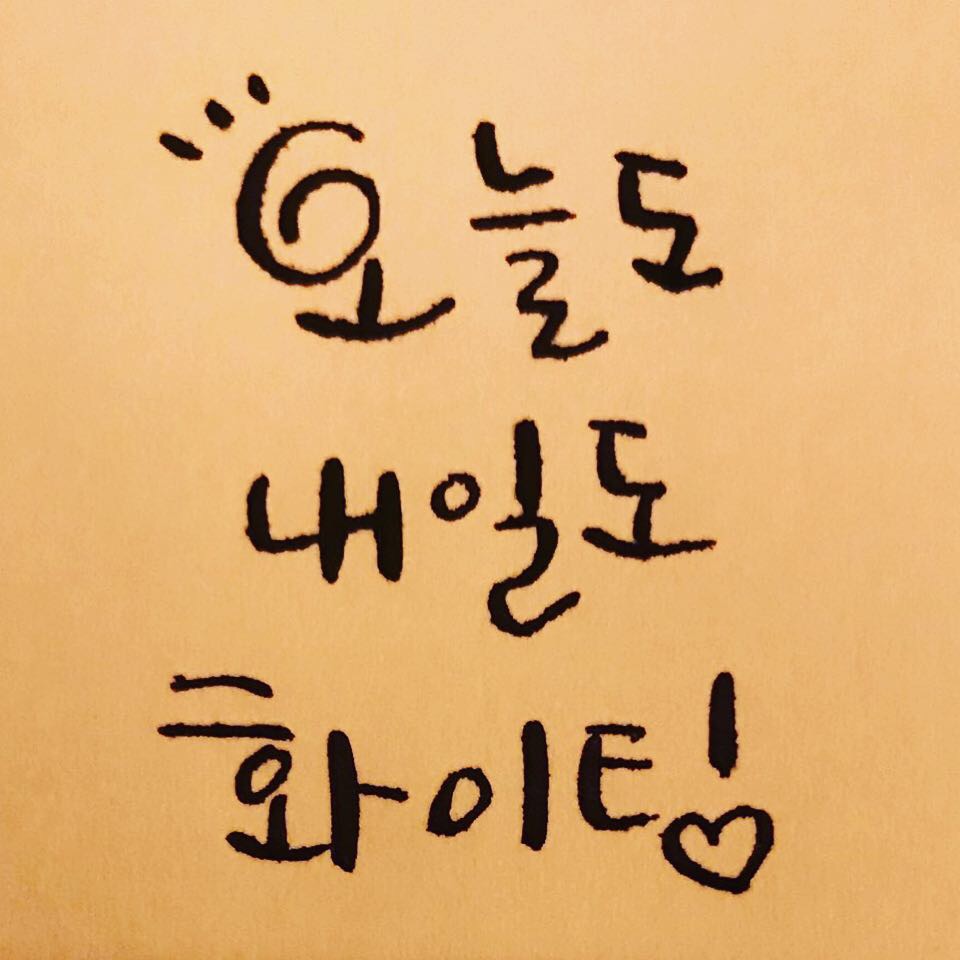 오늘도
내일도
화이팅